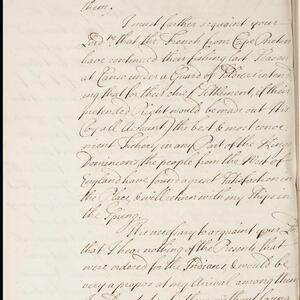 them.
I must farther acquaint your
Lord.ps that the French from Cape Breton
have continued their fishing last Season
at Canso under a Guard of Soldiers inten
ing that for their chief Settlement, if their
pretended Right would be made out it is
(by all account) the best & most conve
nient Fishery in any Part of the Kings
Dominions, the people from the West of
England have found a great Satisfaction in
the Place, & will return with ships in
the Spring.
Necessary to acquaint your
that I hear nothing of the Presents that
were ordered for the Indians, & would be
very a propos at my Arrival among them